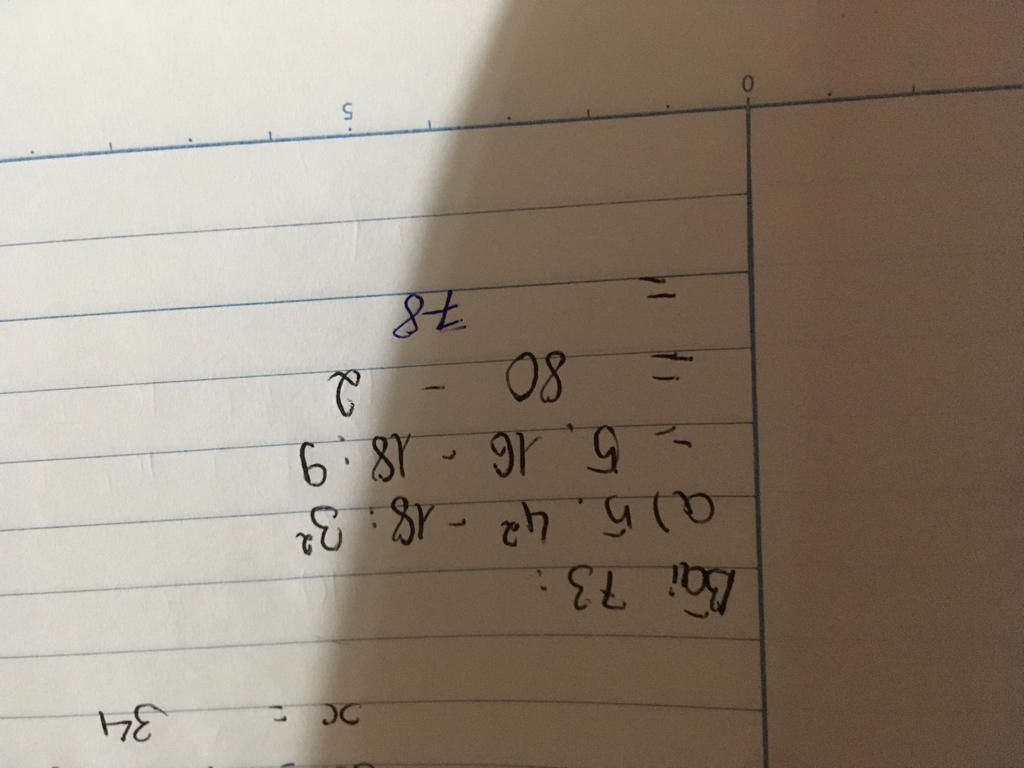 x = 34
Bài 73:
a) 5. 4² - 18: 3²
= 5. 16 - 18: 9
= 80 - 2
= 78
5
0